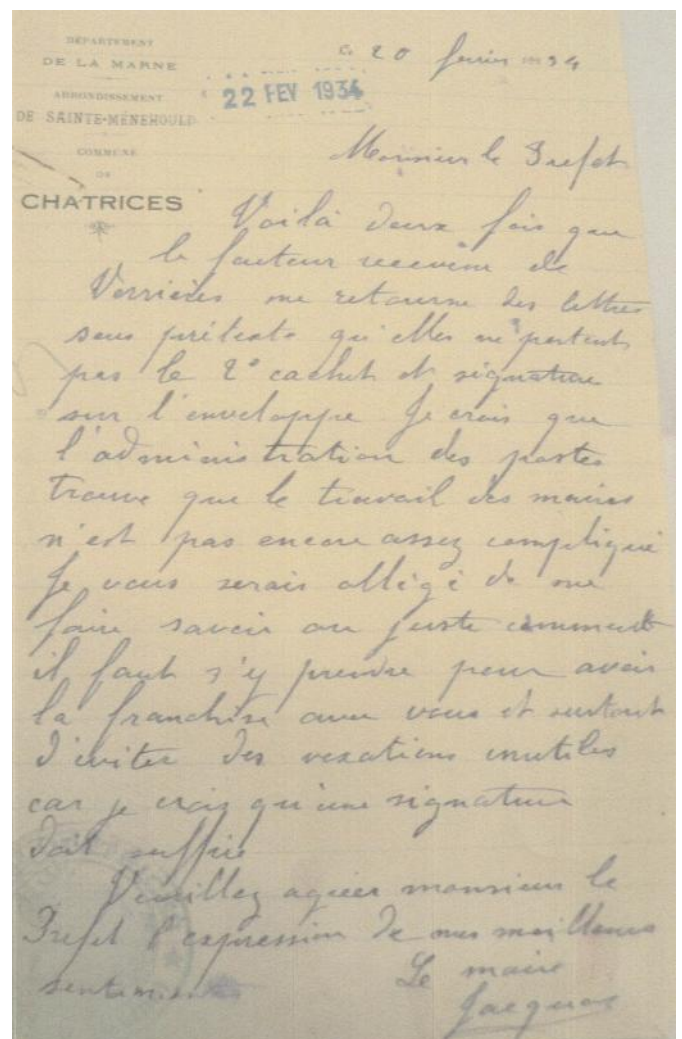 DÉPARTEMENT
DE LA MARNE
ARRONDISSEMENT
DE SAINTE-MÉNEHOULD
COMMUNE
DE
CHATRICES
Ce 20 février 1934
22 FEV 1934
Monsieur le Prefet
Voilà deux fois que
le facteur receveur de
Verrières me retourne des lettres
sous prétexte qu'elles ne portent
pas le 2e cachet et signature
sur l'enveloppe Je crois que
l'administration des postes
trouve que le travail des maires
n'est pas encore assez compliqué
Je vous serais obligé de me
faire savoir au juste comment
il faut s'y prendre pour avoir
la franchise avec vous et surtout
d'éviter des vexations inutiles
car je crois qu'une signature
doit suffire
Veuillez agréer monsieur le
Prefet l'expression de mes meilleurs
sentiments
Le maire